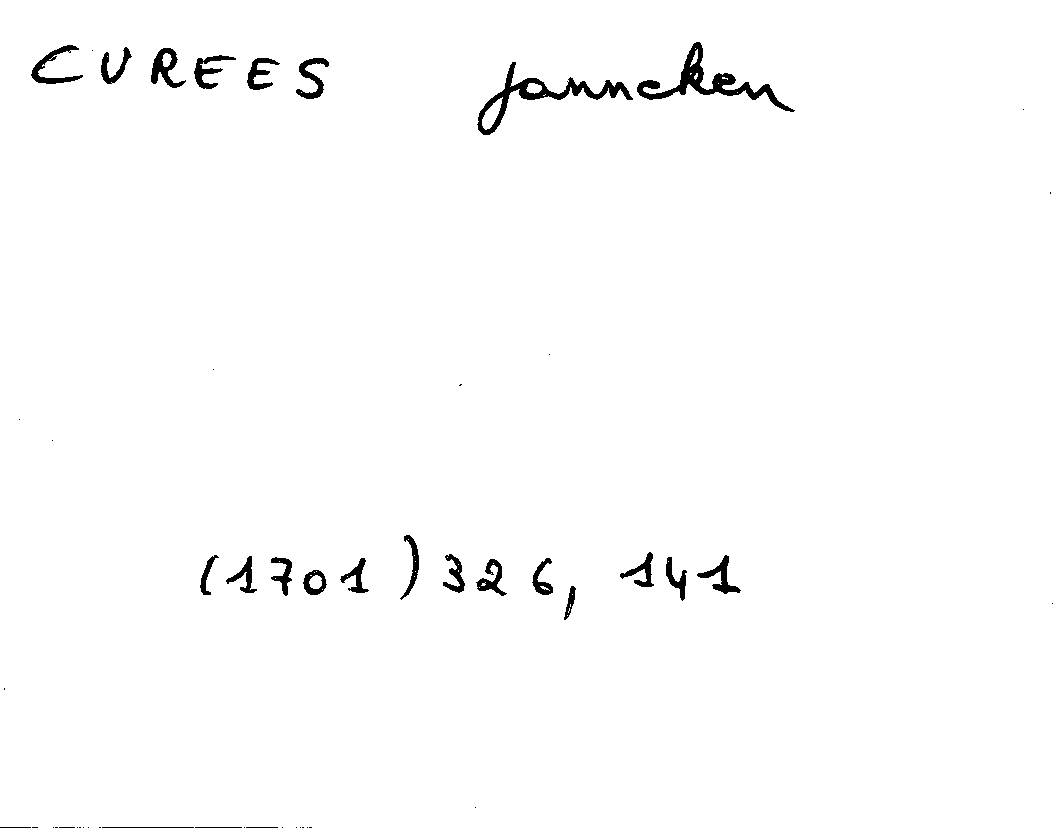 CUREES Janneken
(1701) 326, 141